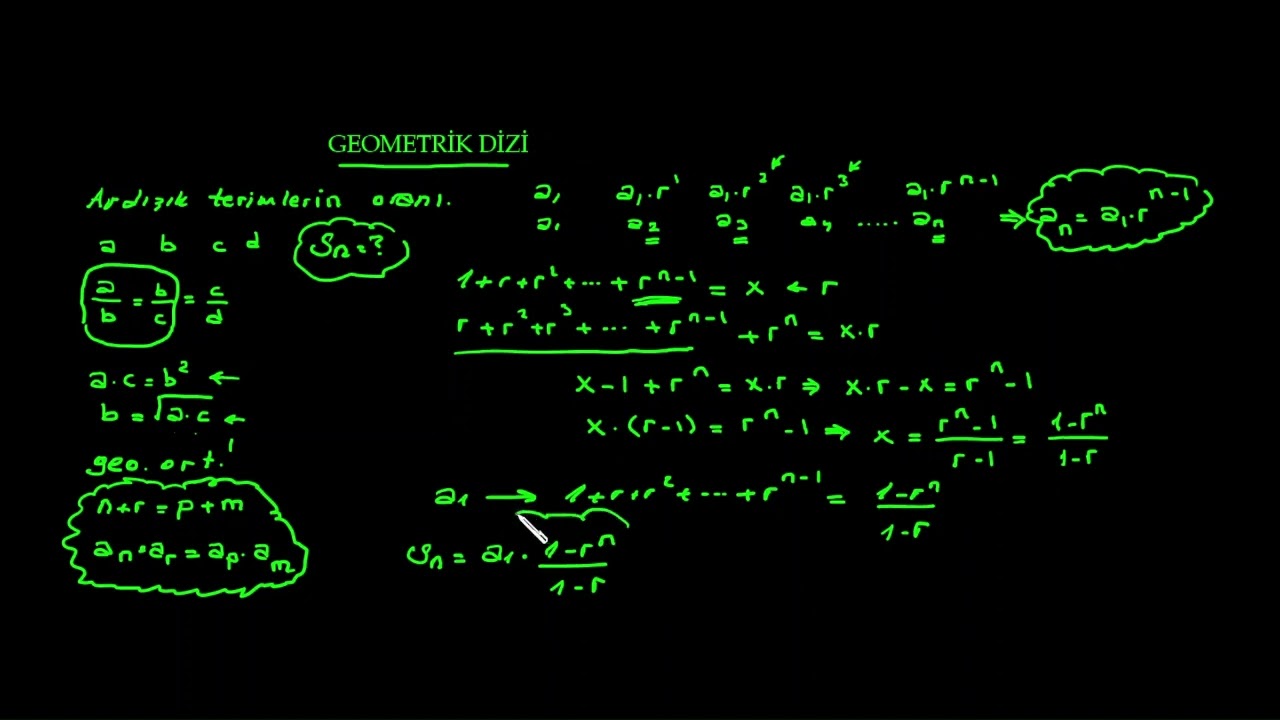 GEOMETRİK DİZİ
Ardışık terimlerin oranı.
a b c d
Sₙ = ?
a/b = b/c = c/d
a·c = b² ←
b = √a·c ←
geo. ort.
n+r = p+m
aₙ·aᵣ = aₚ·aₘ
a₁ a₁·r¹ a₁·r² a₁·r³ a₁·rⁿ⁻¹
a₁ a₂ a₃ a₄ ..... aₙ ⇒ aₙ = a₁·rⁿ⁻¹
1+r+r²+...+rⁿ⁻¹ = x ← r
r+r²+r³+...+rⁿ⁻¹+rⁿ = x·r
x-1+rⁿ = x·r ⇒ x·r-x = rⁿ-1
x·(r-1) = rⁿ-1 ⇒ x = (rⁿ-1)/(r-1) = (1-rⁿ)/(1-r)
a₁ → 1+r+r²+...+rⁿ⁻¹ = (1-rⁿ)/(1-r)
Sₙ = a₁·(1-rⁿ)/(1-r)